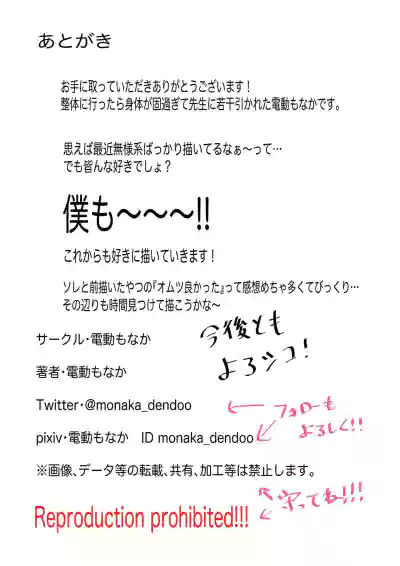 あとがき
お手に取っていただきありがとうございます！
整体に行ったら身体が固過ぎて先生に若干引かれた電動もなかです。
思えば最近無様系ばっかり描いてるなぁ〜って…
でも皆んな好きでしょ？
僕も〜〜〜!!
これからも好きに描いていきます！
ソレと前描いたやつの『オムツ良かった』って感想めちゃ多くてびっくり…
その辺りも時間見つけて描こうかな〜
サークル・電動もなか
今後とも
よろシコ！
著者・電動もなか
Twitter・@monaka_dendoo
フォローも
よろしく!!
pixiv・電動もなか　ID monaka_dendoo
※画像、データ等の転載、共有、加工等は禁止します。
守ってね!!!
Reproduction prohibited!!!